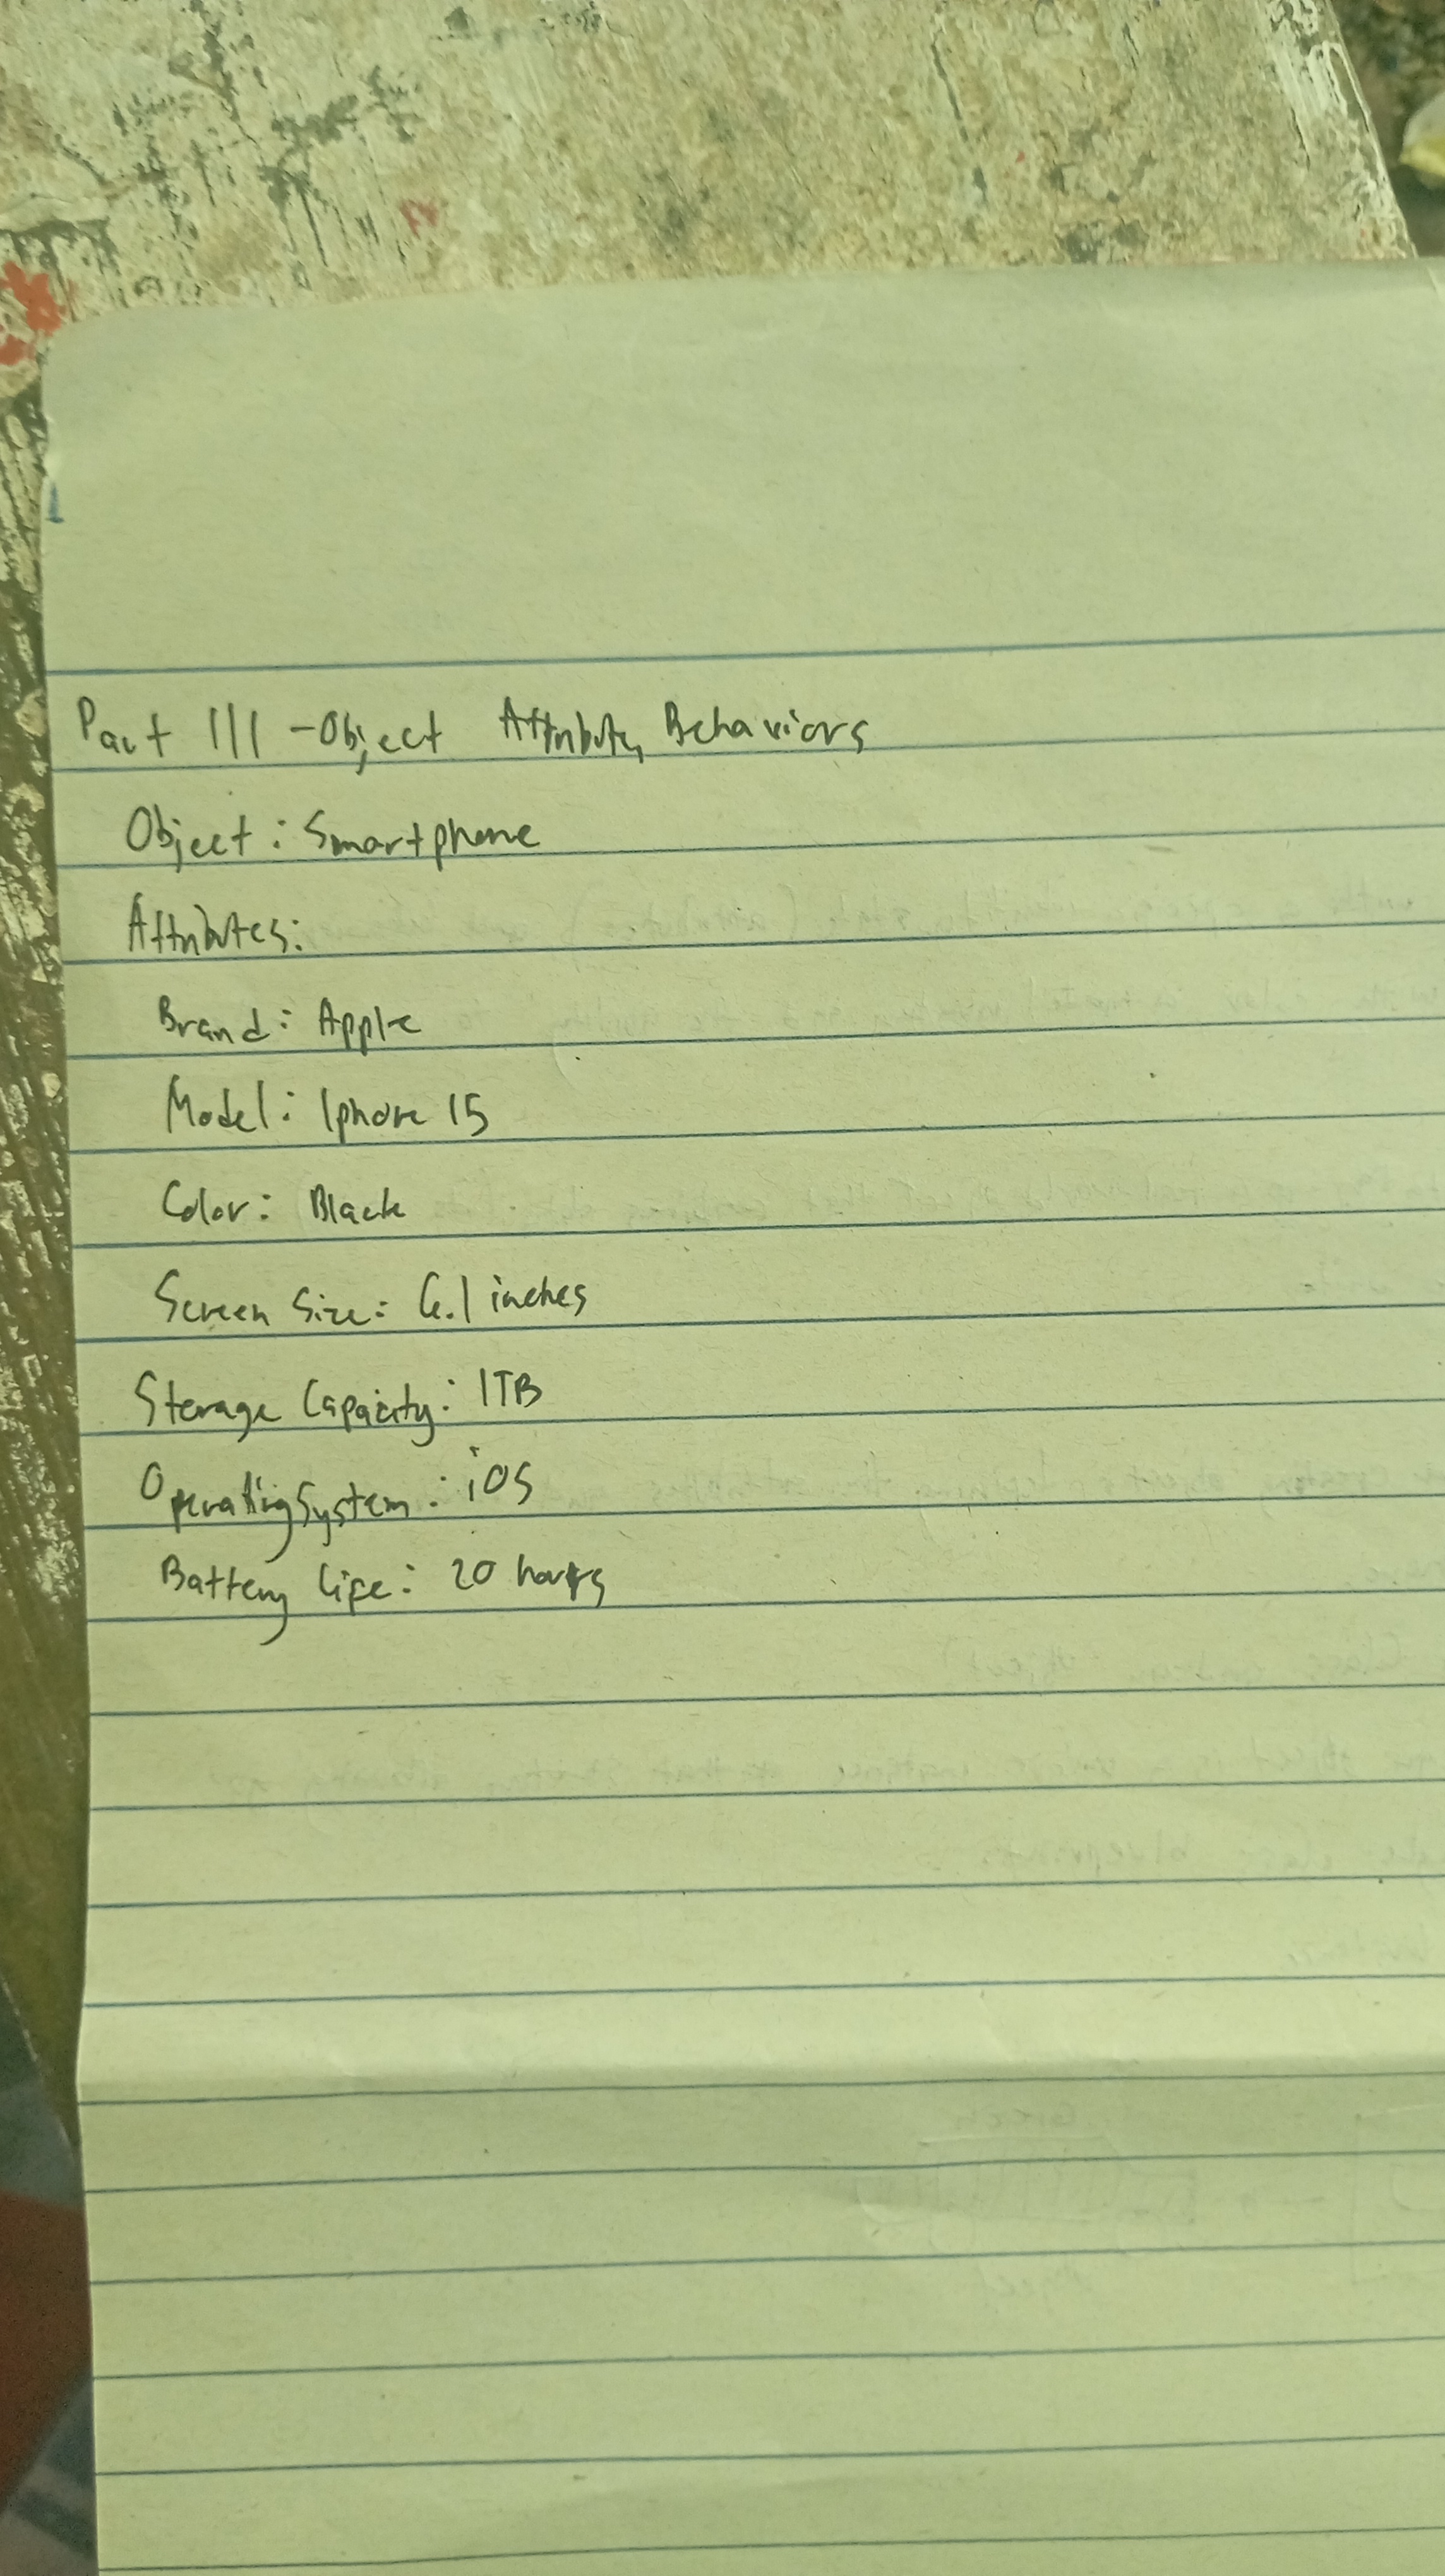 Part III - Object Attributes, Behaviors
Object: Smartphone
Attributes:
Brand: Apple
Model: Iphone 15
Color: Black
Screen Size: 6.1 inches
Storage Capacity: 1TB
Operating System: iOS
Battery Life: 20 hours